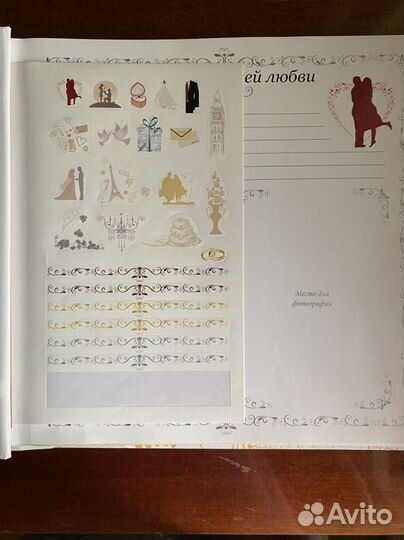 ей любви
Место для
фотографии
Avito